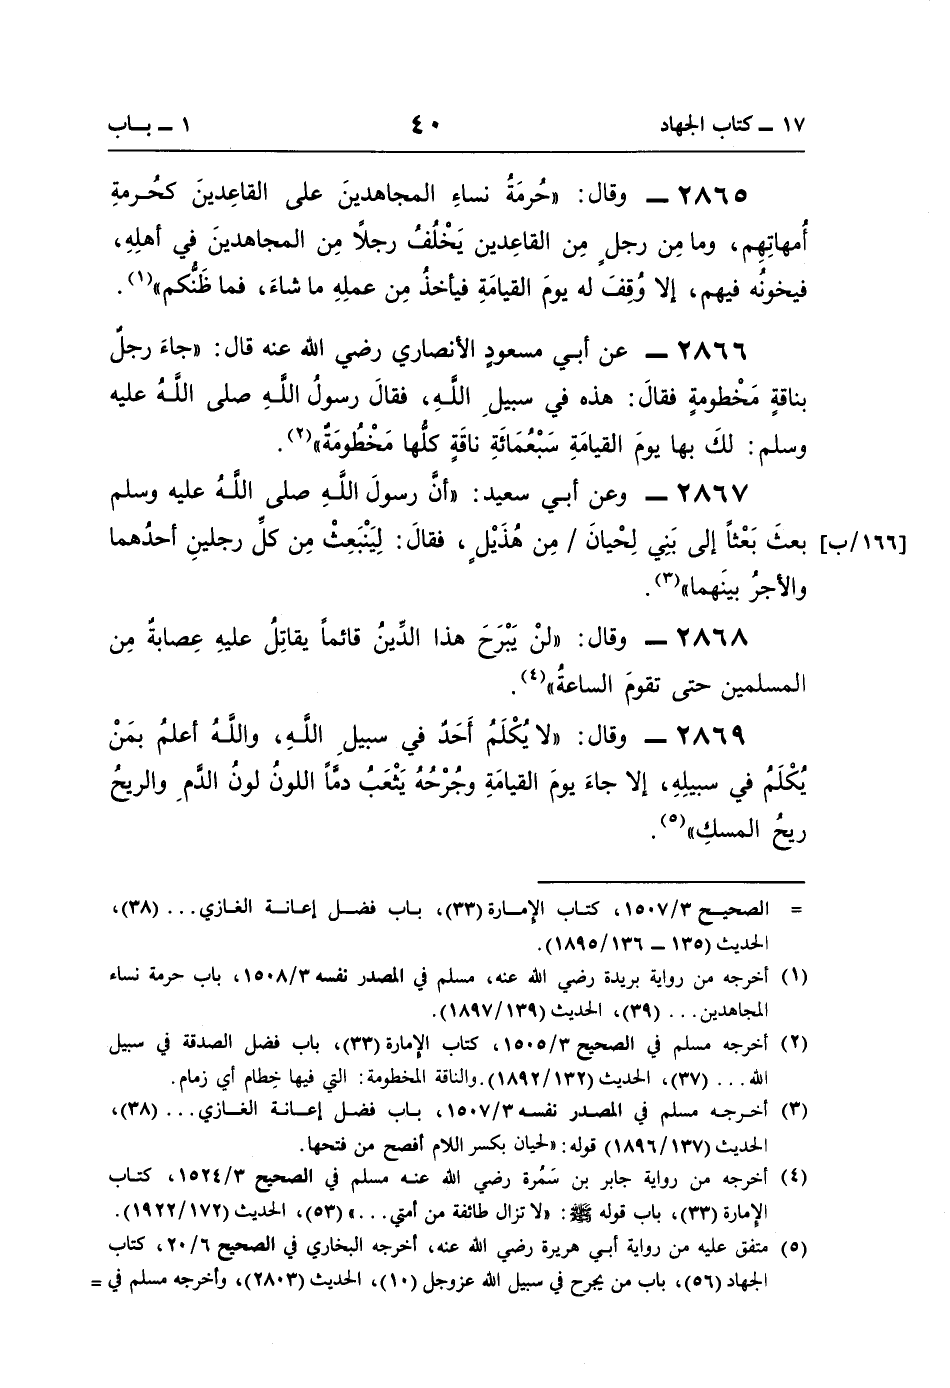 ١٧ ـ كتاب الجهاد ٤٠ ١ ـ بـاب
٢٨٦٥ ـ وقال: «حُرمَةُ نساءِ المجاهدينَ على القاعِدينَ كحُرمةِ
أُمهاتِهِم، وما مِن رجلٍ مِن القاعدين يَخْلُفُ رجلاً مِن المجاهدينَ في أهلِهِ،
فيخونُه فيهم، إلا وُقِفَ له يومَ القيامَةِ فيأخذُ مِن عملِهِ ما شاءَ، فما ظَنُّكم»(١).
٢٨٦٦ ـ عن أبي مسعودٍ الأنصاري رضي الله عنه قال: «جاءَ رجلٌ
بناقةٍ مَخْطومةٍ فقالَ: هذه في سبيلِ اللَّهِ، فقالَ رسولُ اللَّهِ صلى اللَّهُ عليه
وسلم: لكَ بها يومَ القيامَةِ سَبْعُمَائَةِ ناقَةٍ كلُّها مَخْطُومَةٌ»(٢).
٢٨٦٧ ـ وعن أبي سعيد: «أنَّ رسولَ اللَّهِ صلى اللَّهُ عليه وسلم
[١٦٦/ب] بعثَ بَعْثاً إلى بَنِي لِحْيانَ / مِن هُذَيْلٍ، فقالَ: لِيَنْبَعِثْ مِن كلِّ رجلينِ أحدُهما
والأجرُ بينَهما»(٣).
٢٨٦٨ ـ وقال: «لنْ يَبْرَحَ هذا الدِّينُ قائماً يقاتِلُ عليهِ عِصابةٌ مِن
المسلمين حتى تقومَ الساعةُ»(٤).
٢٨٦٩ ـ وقال: «لا يُكْلَمُ أَحَدٌ في سبيلِ اللَّهِ، واللَّهُ أعلمُ بمَنْ
يُكْلَمُ في سبيلِهِ، إلا جاءَ يومَ القيامَةِ وجُرْحُهُ يَثْعَبُ دمَّاً اللونُ لونُ الدَّمِ والريحُ
ريحُ المسكِ»(٥).
= الصحيح ١٥٠٧/٣، كتاب الإمارة (٣٣)، باب فضل إعانة الغازي... (٣٨)،
الحديث (١٣٥ ـ ١٨٩٥/١٣٦).
(١) أخرجه من رواية بريدة رضي الله عنه، مسلم في المصدر نفسه ١٥٠٨/٣، باب حرمة نساء
المجاهدين... (٣٩)، الحديث (١٨٩٧/١٣٩).
(٢) أخرجه مسلم في الصحيح ١٥٠٥/٣، كتاب الإمارة (٣٣)، باب فضل الصدقة في سبيل
الله... (٣٧)، الحديث (١٨٩٢/١٣٢).والناقة المخطومة: التي فيها خِطام أي زمام.
(٣) أخرجه مسلم في المصدر نفسه ١٥٠٧/٣، باب فضل إعانة الغازي... (٣٨)،
الحديث (١٨٩٦/١٣٧) قوله: «لحيان بكسر اللام أفصح من فتحها.
(٤) أخرجه من رواية جابر بن سَمُرة رضي الله عنه مسلم في الصحيح ١٥٢٤/٣، كتاب
الإمارة (٣٣)، باب قوله ﷺ: «لا تزال طائفة من أمتي...» (٥٣)، الحديث (١٩٢٢/١٧٢).
(٥) متفق عليه من رواية أبي هريرة رضي الله عنه، أخرجه البخاري في الصحيح ٢٠/٦، كتاب
الجهاد (٥٦)، باب من يجرح في سبيل الله عزوجل (١٠)، الحديث (٢٨٠٣)، وأخرجه مسلم في =